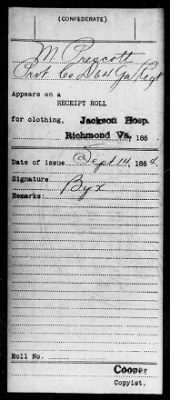 (CONFEDERATE)
M Prescott
Pvt Co D 64 Ga Regt
Appears on a
RECEIPT ROLL
for clothing, Jackson Hosp.
Richmond Va, 186 .
Date of issue Sept 14, 1864.
Signature By x
Remarks:
Roll No.
Cooper
Copyist.